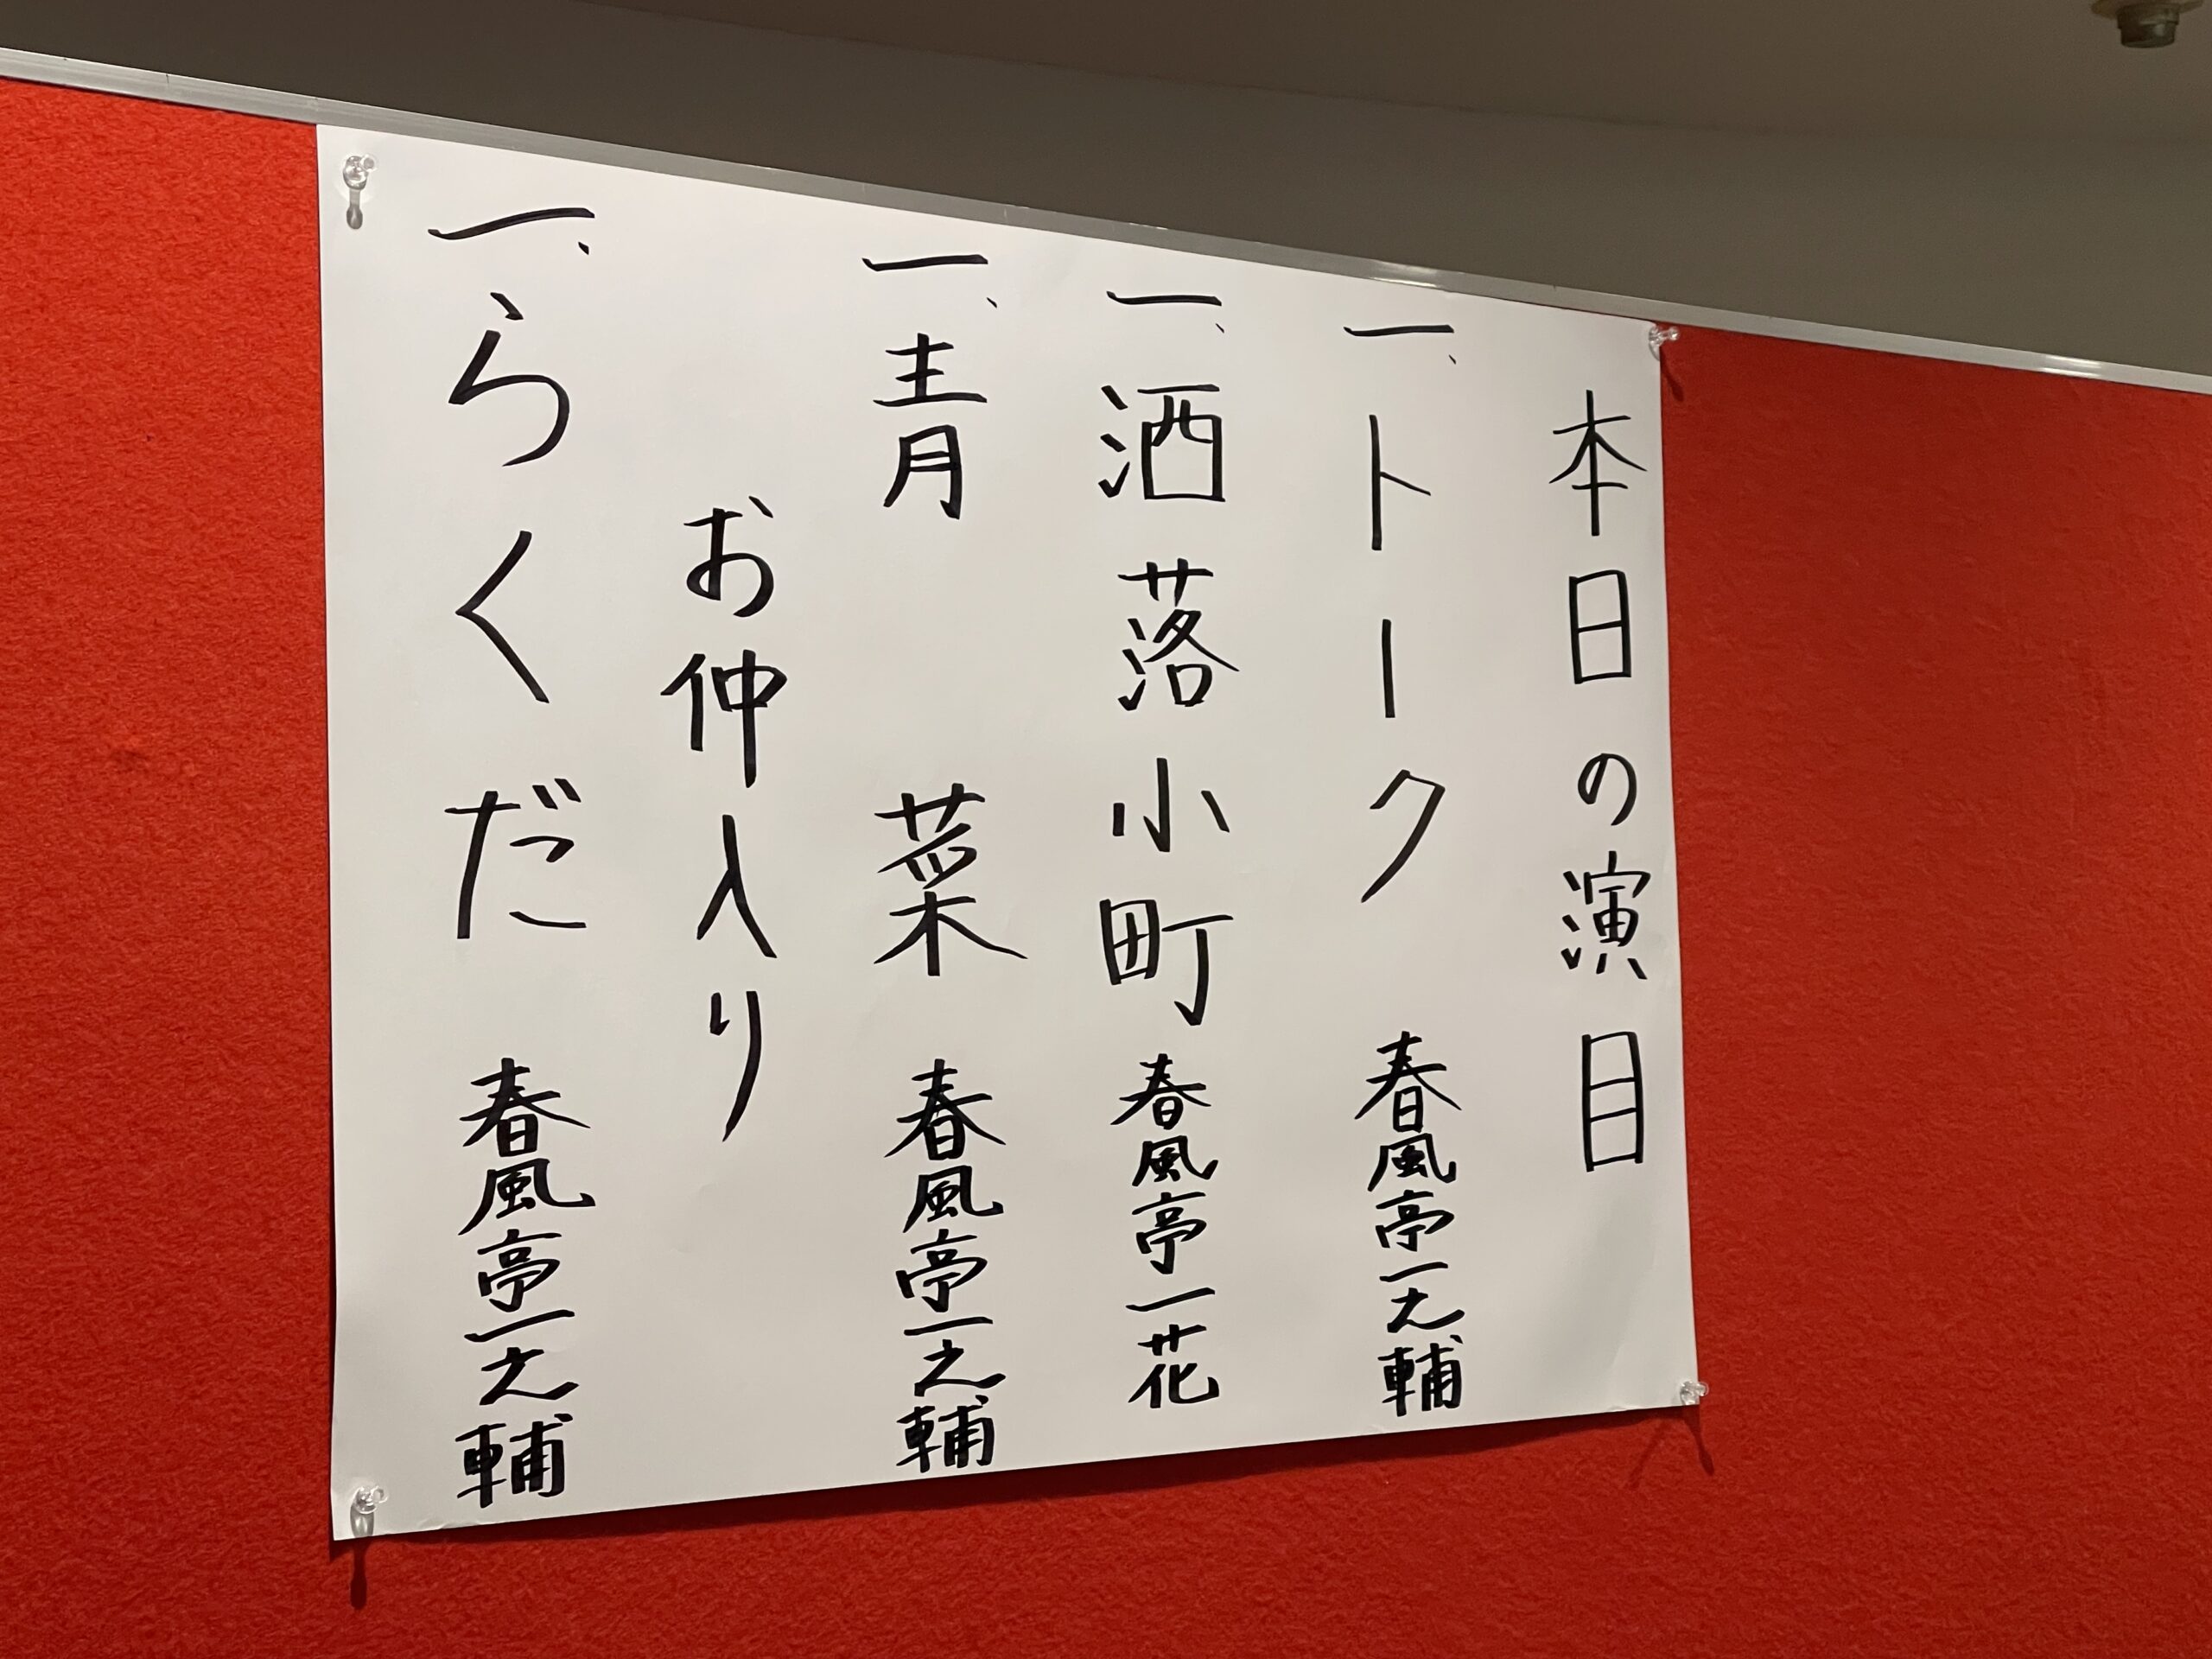 本日の演目
一、トーク 春風亭一之輔
一、洒落小町 春風亭一花
一、青菜 春風亭一之輔
お仲入り
一、らくだ 春風亭一之輔